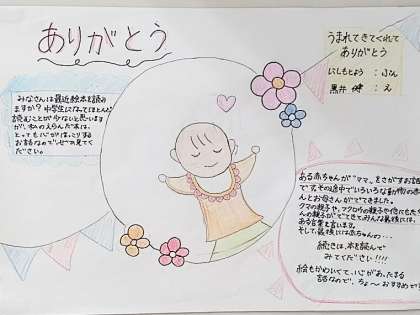 ありがとう
うまれてきてくれて
ありがとう
にしもとよう：ぶん
黒井 健：え
みなさんは最近絵本を読み
ますか？中学生になってほとんど
読むことが少ないと思います
が、私のえらんだ本は、
とっても心がほっこりする
お話なのでぜひ見てく
ださい。
ある赤ちゃんが"ママ"をさがすお話
です。その途中でいろいろな動物の赤ちゃ
んとお母さんがでてきました。
クマの親子や、フクロウの親子や他にもたくさ
んの親子がでてきてみんな最後には、
ある言葉を言います。
そして、最後には赤ちゃんの・・・
続きは、本を読んで
みてください!!!!
絵もかわいくて、心があたたまる
話なので、ちょ〜おすすめです